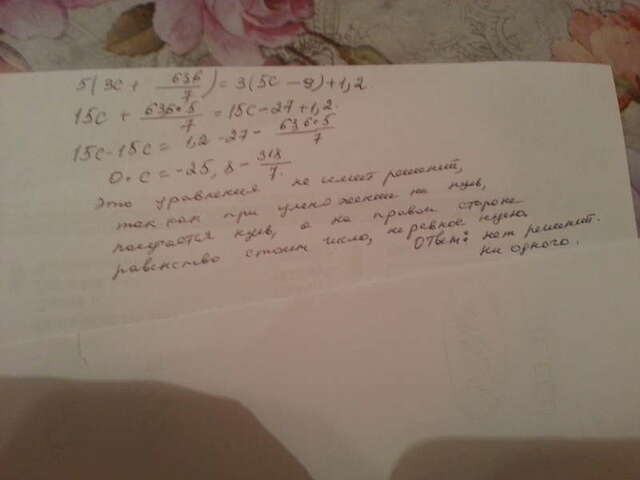 5(3c + 636/7) = 3(5c - 9) + 1,2
15c + 636·5/7 = 15c - 27 + 1,2.
15c - 15c = 1,2 - 27 - 636·5/7
0·c = -25,8 - 318/7.
Это уравнения не имеет решений,
так как при умножении на нуль,
получается нуль, а на правой стороне
равенство стоит число, не равное нулю.
Ответ: нет решений.
ни одного.